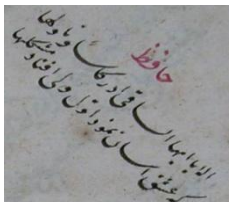 حافظ
الا یا ایها الساقی ادر کاسا و ناولها
که عشق آسان نمود اول ولی افتاد مشکلها